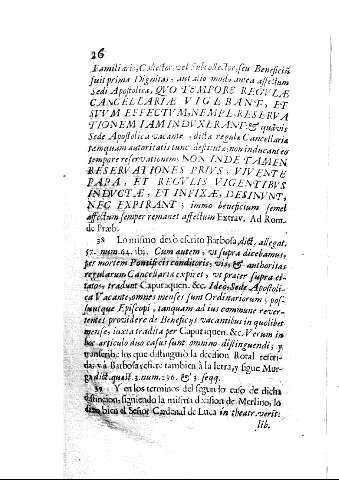 26
Familiaris, Collector, vel Subcollector, seu Beneficiũ
fuit prima Dignitas, aut alio modo antea affectum
Sedi Apostolicæ, QVO TEMPORE REGVLÆ
CANCELLARIÆ VIGEBANT, ET
SVVM EFFECTVM, NEMPE RESERVA
TIONEM IAM INDVXERANT: & quãvis
Sede Apostolica vacante, dicta regula Cancellariæ
tamquam autoritatis tunc destitutæ, non inducant eo
tempore reservationem NON INDE TAMEN
RESERVATIONES PRIVS, VIVENTE
PAPA, ET REGVLIS VIGENTIBVS
INDVCTÆ, ET INFIXÆ, DESINVNT,
NEC EXPIRANT; immo beneficium semel
affectum semper remanet affectum Extrav. Ad Rom.
de Præb.
38 Lo mismo dexò escrito Barbosa, dict. allegat.
57. num. 64. ibi: Cum autem, ut supra dicebamus,
per mortem Pontificis conditoris, vis, & authoritas
regularum Cancellariæ expiret, ut præter supra ci-
tatos, tradunt Caputaquen. &c. Ideo, Sede Apostoli-
ca Vacante, omnes menses sunt Ordinariorum; pos-
suntque Episcopi, tanquam ad ius commune rever-
tentes providere de Beneficijs vacantibus in quolibet
mense, iuxta tradita per Caputaquen. &c. Verum in
hoc articulo duo casus sunt omnino distinguendi; y
poniendo los que distinguiò la decision Rotal referi-
da, và Barbosa escrive tambien à la letra, y sigue Mur-
ga dict. quæst. 3. num. 236. & 3. seqq.
39 Y en los terminos del segundo caso de dicha
distincion, siguiendo la misma decision de Merlino, lo
dize bien el Señor Cardenal de Luca in theatr. verit.
lib.